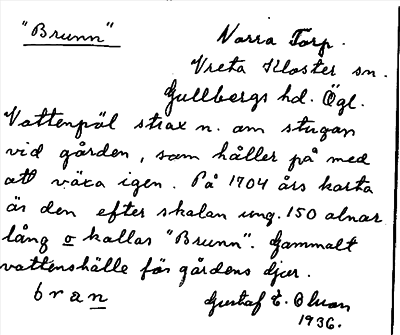 "Brunn"
Norra Torp.
Vreta Kloster sn.
Gullbergs hd. Ögl.
Vattenpöl strax n. om stugan
vid gården, som håller på med
att växa igen. På 1704 års karta
är den efter skalan ung. 150 alnar
lång o kallas "Brunn". Gammalt
vattenhälle för gårdens djur.
bran
Gustaf E. Olson
1936.